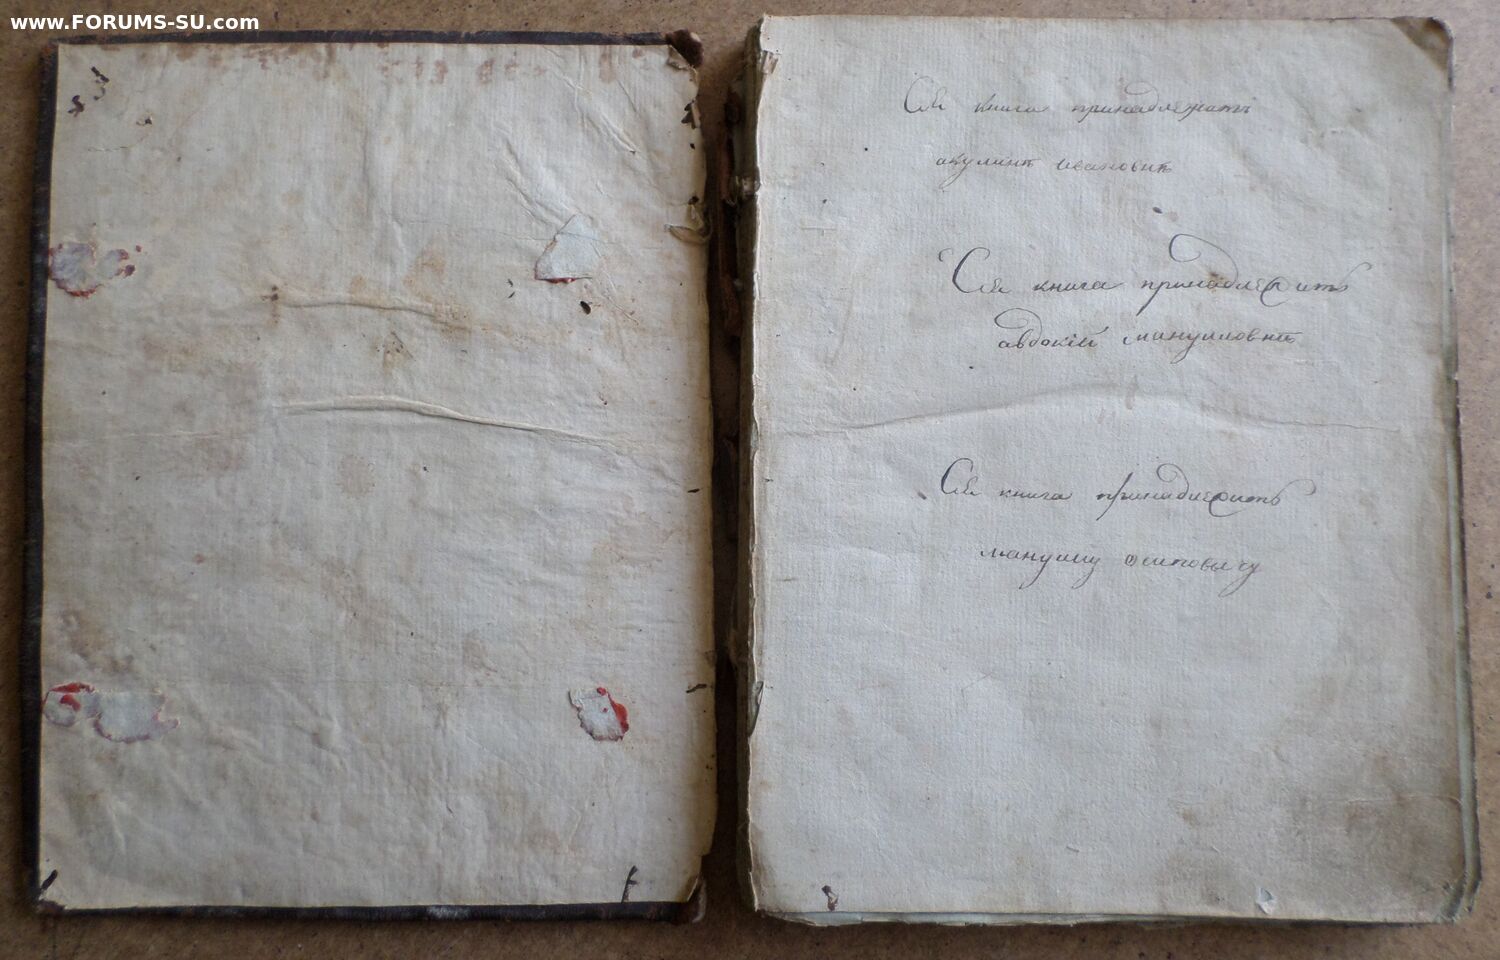 www.FORUMS-SU.com
Сия книга принадлежатъ
акулинѣ ивановнѣ
Сия книга принадлежитъ
авдокїй мануиловнѣ
Сия книга принадлежитъ
мануилу осиповичу